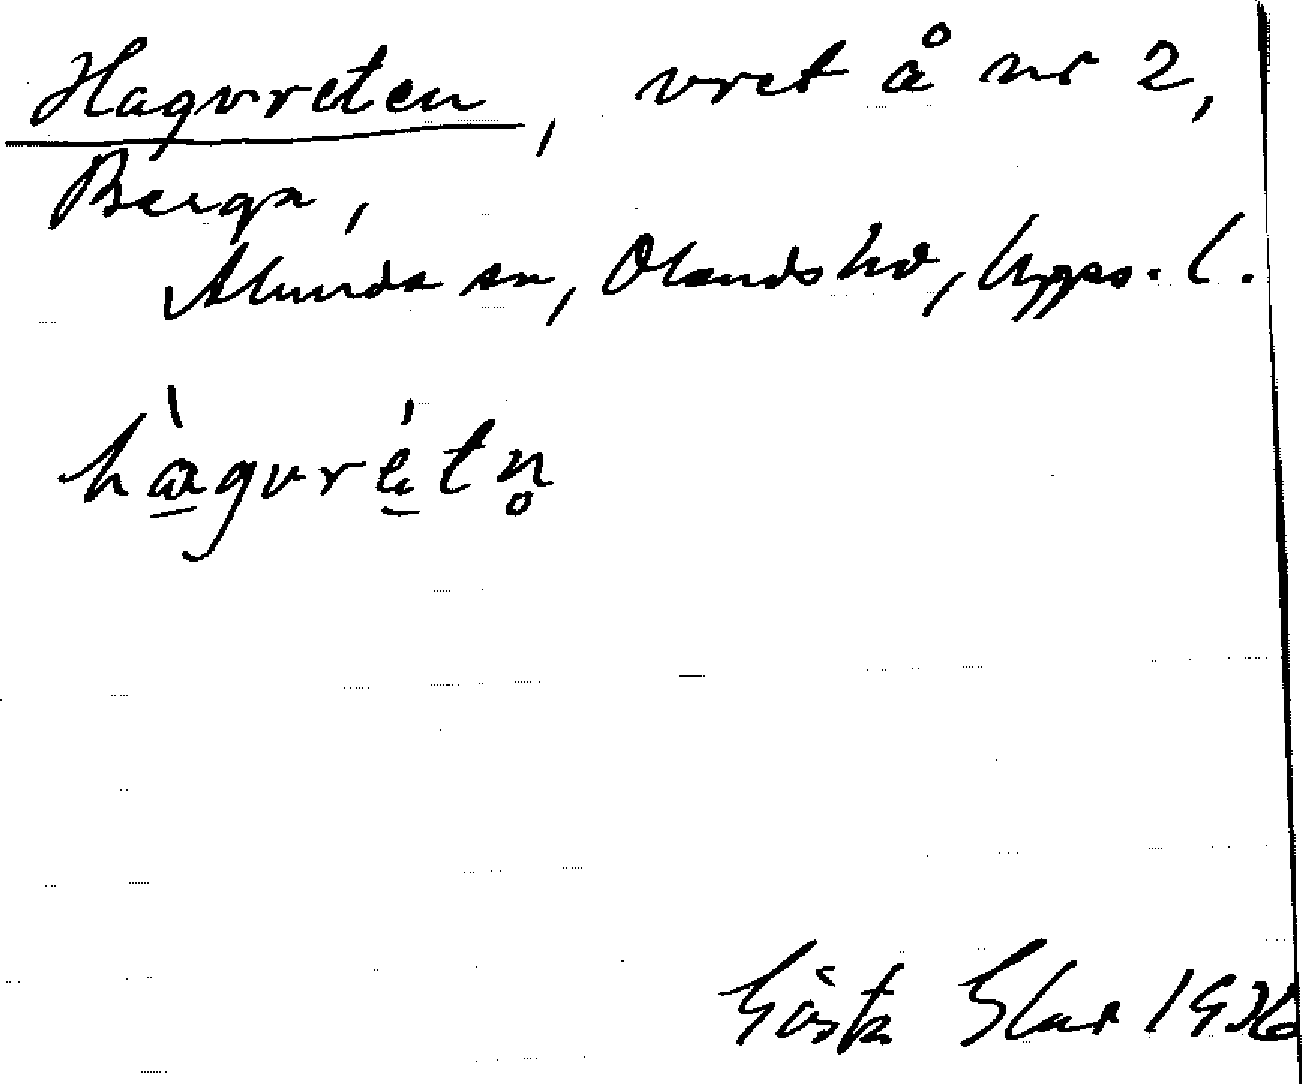 Hagvreten, vret å nr 2,
Berga,
Alunda sn, Olands hd, Upps. l.
hàgvrétn̥
Gösta
1936